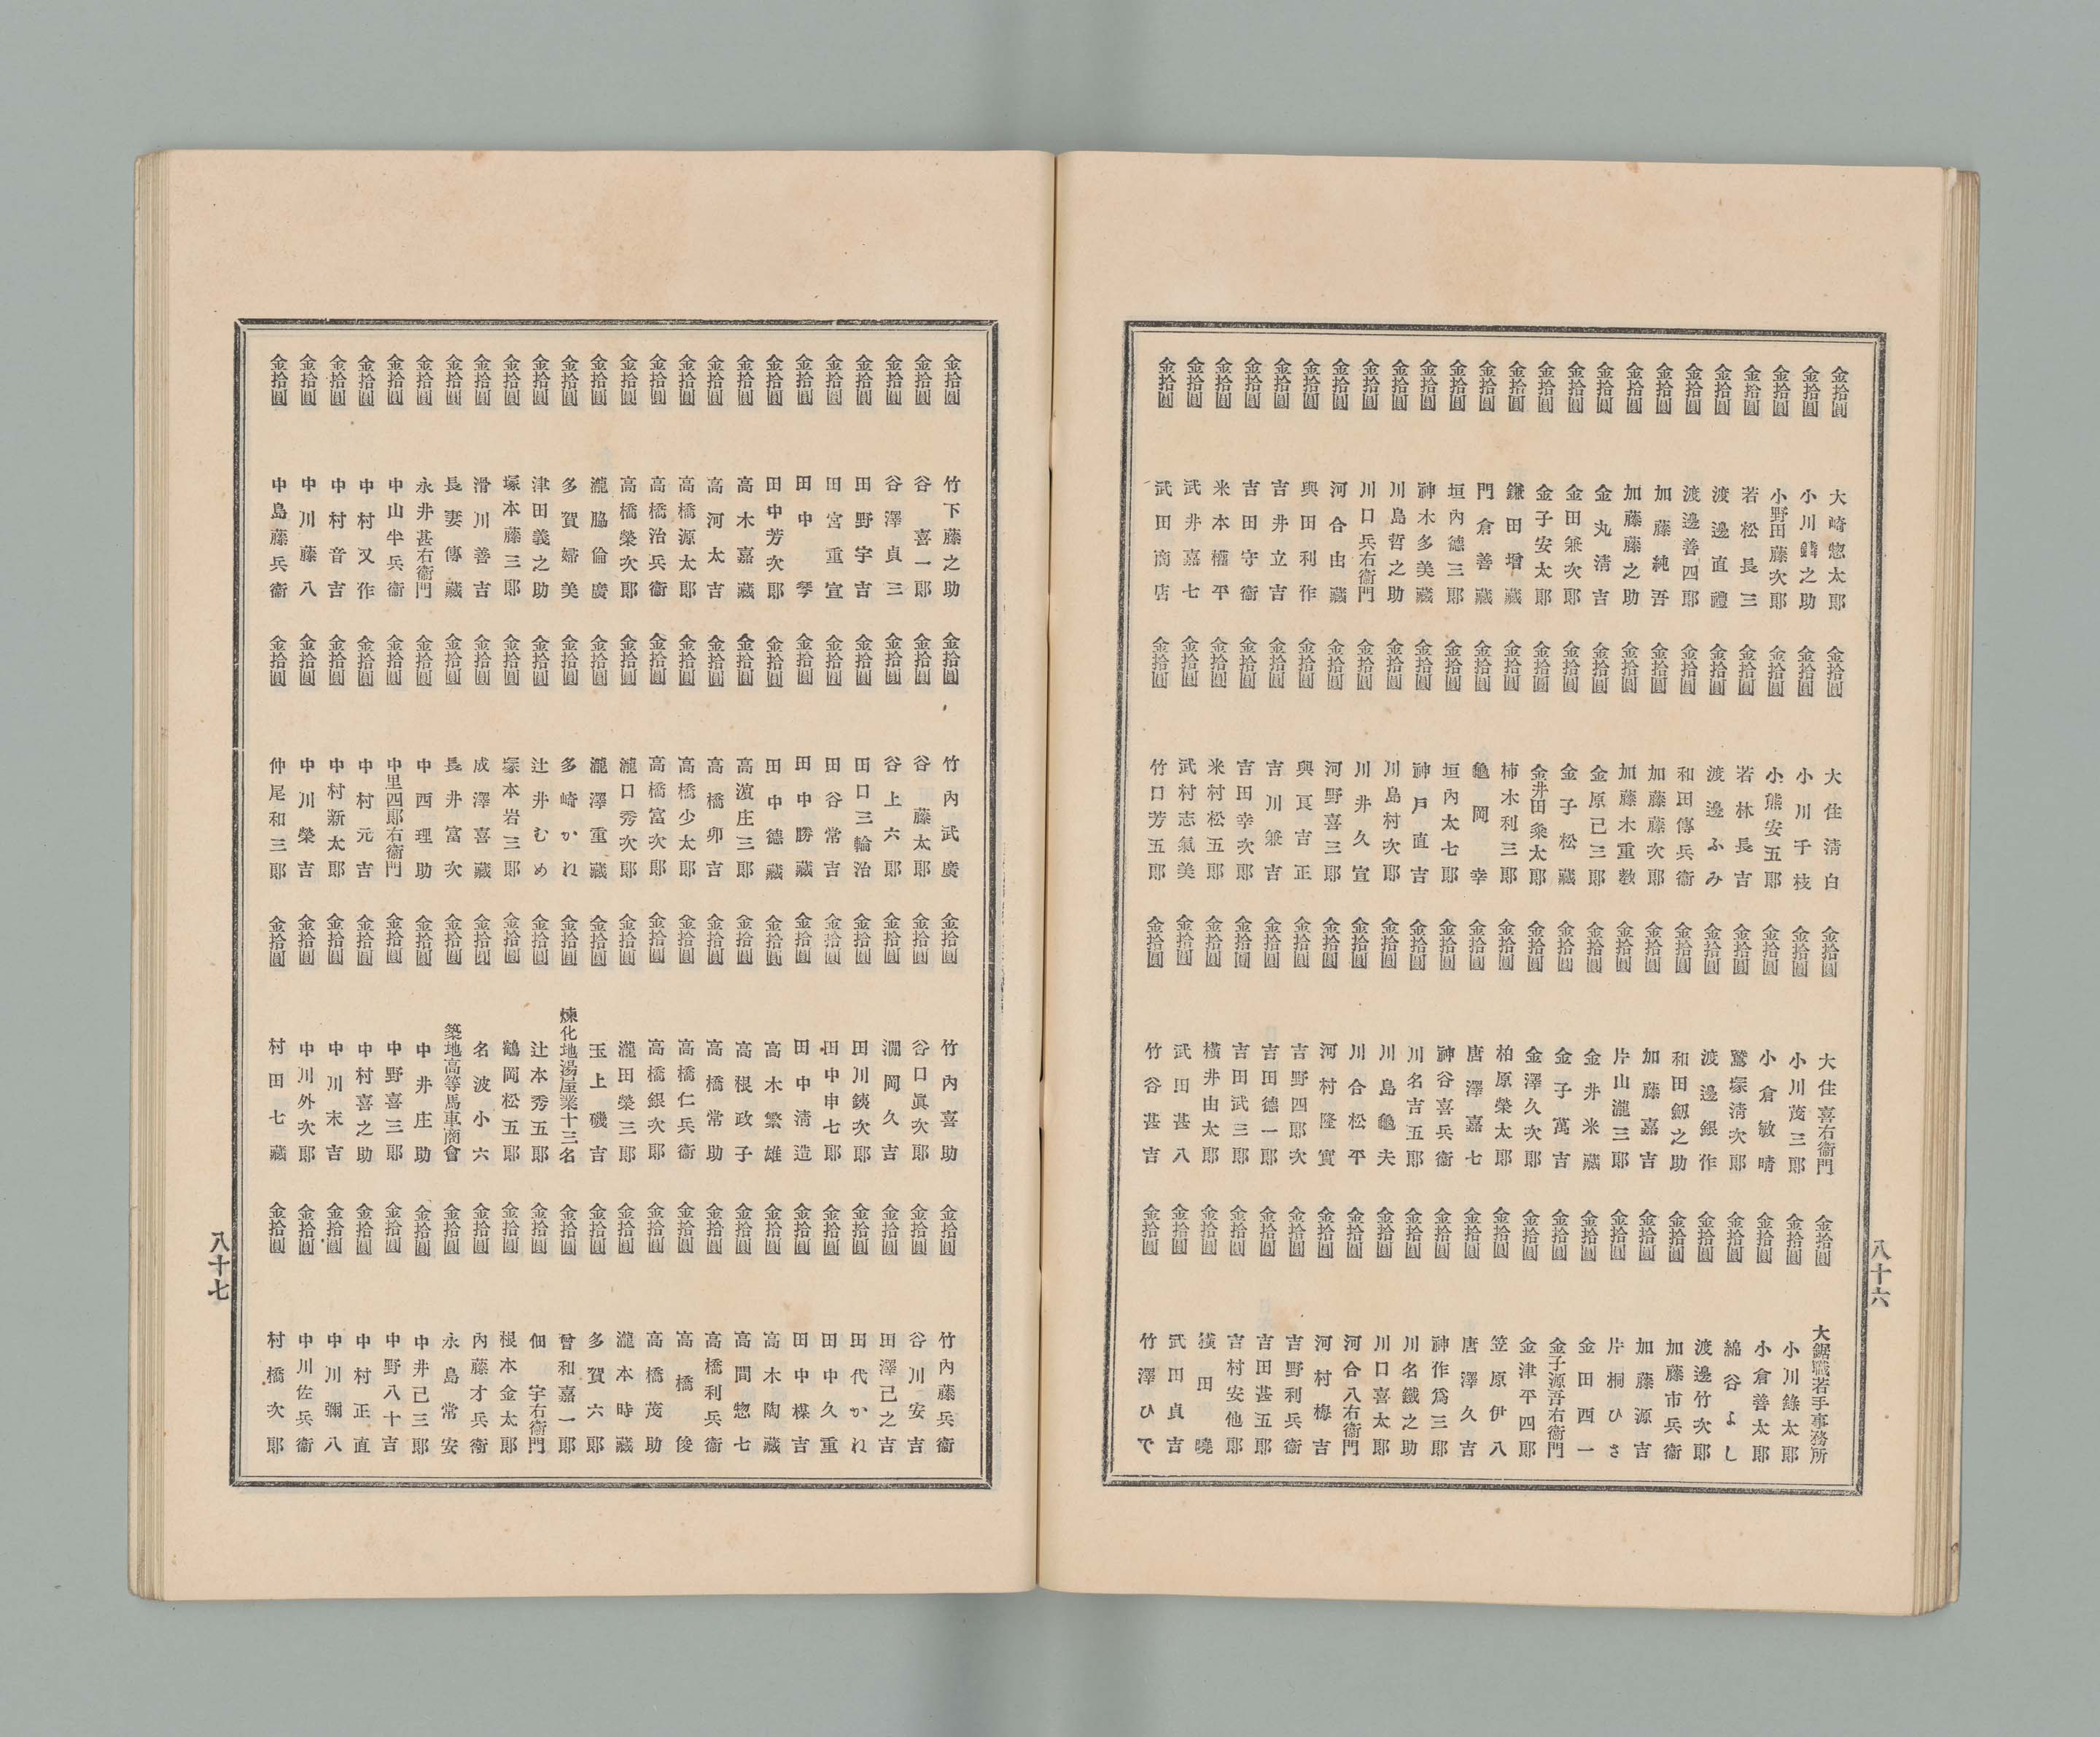 金拾圓 大崎惣太郎 金拾圓 大住清白 金拾圓 大住喜右衞門 金拾圓 大鋸職若手事務所
金拾圓 小川鑄之助 金拾圓 小川千枝 金拾圓 小川茂三郎 金拾圓 小川錄太郎
金拾圓 小野田藤次郎 金拾圓 小熊安五郎 金拾圓 小倉敏晴 金拾圓 小倉善太郎
金拾圓 若松長三 金拾圓 若林長吉 金拾圓 鷲塚清次郎 金拾圓 綿谷よし
金拾圓 渡邊直禮 金拾圓 渡邊ふみ 金拾圓 渡邊銀作 金拾圓 渡邊竹次郎
金拾圓 渡邊善四郎 金拾圓 和田傳兵衞 金拾圓 和田釼之助 金拾圓 加藤市兵衞
金拾圓 加藤純吾 金拾圓 加藤藤次郎 金拾圓 加藤嘉吉 金拾圓 加藤源吉
金拾圓 加藤藤之助 金拾圓 加藤木重教 金拾圓 片山瀧三郎 金拾圓 片桐ひさ
金拾圓 金丸清吉 金拾圓 金原已三郎 金拾圓 金井米藏 金拾圓 金田酉一
金拾圓 金田兼次郎 金拾圓 金子松藏 金拾圓 金子萬吉 金拾圓 金子源吾右衞門
金拾圓 金子安太郎 金拾圓 金井田粂太郎 金拾圓 金澤久次郎 金拾圓 金津平四郎
金拾圓 鎌田増藏 金拾圓 柿木利三郎 金拾圓 柏原榮太郎 金拾圓 笠原伊八
金拾圓 門倉善藏 金拾圓 龜岡幸 金拾圓 唐澤嘉七 金拾圓 唐澤久吉
金拾圓 垣內德三郎 金拾圓 垣內太七郎 金拾圓 神谷喜兵衞 金拾圓 神作爲三郎
金拾圓 神木多美藏 金拾圓 神戸直吉 金拾圓 川名吉五郎 金拾圓 川名鐵之助
金拾圓 川島哲之助 金拾圓 川島村次郎 金拾圓 川島龜夫 金拾圓 川口喜太郎
金拾圓 川口兵右衞門 金拾圓 川井久宣 金拾圓 川合松平 金拾圓 河合八右衞門
金拾圓 河合由藏 金拾圓 河野喜三郎 金拾圓 河村隆實 金拾圓 河村梅吉
金拾圓 與田利作 金拾圓 與良吉正 金拾圓 吉野四郎次 金拾圓 吉野利兵衞
金拾圓 吉井立吉 金拾圓 吉川兼吉 金拾圓 吉田德一郎 金拾圓 吉田甚五郎
金拾圓 吉田守衞 金拾圓 吉田幸次郎 金拾圓 吉田武三郎 金拾圓 吉村安他郎
金拾圓 米本權平 金拾圓 米村松五郎 金拾圓 横井由太郎 金拾圓 横田曉
金拾圓 武井嘉七 金拾圓 武村志氣美 金拾圓 武田甚八 金拾圓 武田貞吉
金拾圓 武田商店 金拾圓 竹口芳五郎 金拾圓 竹谷甚吉 金拾圓 竹澤ひで
八十六
金拾圓 竹下藤之助 金拾圓 竹內武廣 金拾圓 竹內喜助 金拾圓 竹內藤兵衞
金拾圓 谷喜一郎 金拾圓 谷藤太郎 金拾圓 谷口眞次郎 金拾圓 谷川安吉
金拾圓 谷澤貞三 金拾圓 谷上六郎 金拾圓 澗岡久吉 金拾圓 田澤己之吉
金拾圓 田野宇吉 金拾圓 田口三輪治 金拾圓 田川銕次郎 金拾圓 田代かね
金拾圓 田宮重宣 金拾圓 田谷常吉 金拾圓 田中申七郎 金拾圓 田中久重
金拾圓 田中琴 金拾圓 田中勝藏 金拾圓 田中清造 金拾圓 田中楳吉
金拾圓 田中芳次郎 金拾圓 田中德藏 金拾圓 高木繁雄 金拾圓 高木陶藏
金拾圓 高木嘉藏 金拾圓 高濵庄三郎 金拾圓 高根政子 金拾圓 高間惣七
金拾圓 高河太吉 金拾圓 高橋卯吉 金拾圓 高橋常助 金拾圓 高橋利兵衞
金拾圓 高橋源太郎 金拾圓 高橋少太郎 金拾圓 高橋仁兵衞 金拾圓 高橋俊
金拾圓 高橋治兵衞 金拾圓 高橋富次郎 金拾圓 高橋銀次郎 金拾圓 高橋茂助
金拾圓 高橋榮次郎 金拾圓 瀧口秀次郎 金拾圓 瀧田榮三郎 金拾圓 瀧本時藏
金拾圓 瀧脇倫廣 金拾圓 瀧澤重藏 金拾圓 玉上磯吉 金拾圓 多賀六郎
金拾圓 多賀婦美 金拾圓 多崎かね 金拾圓 煉化地湯屋業十三名 金拾圓 曾和嘉一郎
金拾圓 津田義之助 金拾圓 辻井むめ 金拾圓 辻本秀五郎 金拾圓 佃宇右衞門
金拾圓 塚本藤三郎 金拾圓 塚本岩三郎 金拾圓 鶴岡松五郎 金拾圓 根本金太郎
金拾圓 滑川善吉 金拾圓 成澤喜藏 金拾圓 名波小六 金拾圓 內藤才兵衞
金拾圓 長妻傳藏 金拾圓 長井富次 金拾圓 築地高等馬車商會 金拾圓 永島常安
金拾圓 永井甚右衞門 金拾圓 中西理助 金拾圓 中井庄助 金拾圓 中井己三郎
金拾圓 中山半兵衞 金拾圓 中里四郎右衞門 金拾圓 中野喜三郎 金拾圓 中野八十吉
金拾圓 中村又作 金拾圓 中村元吉 金拾圓 中村喜之助 金拾圓 中村正直
金拾圓 中村音吉 金拾圓 中村新太郎 金拾圓 中川末吉 金拾圓 中川彌八
金拾圓 中川藤八 金拾圓 中川榮吉 金拾圓 中川外次郎 金拾圓 中川佐兵衞
金拾圓 中島藤兵衞 金拾圓 仲尾和三郎 金拾圓 村田七藏 金拾圓 村橋次郎
八十七